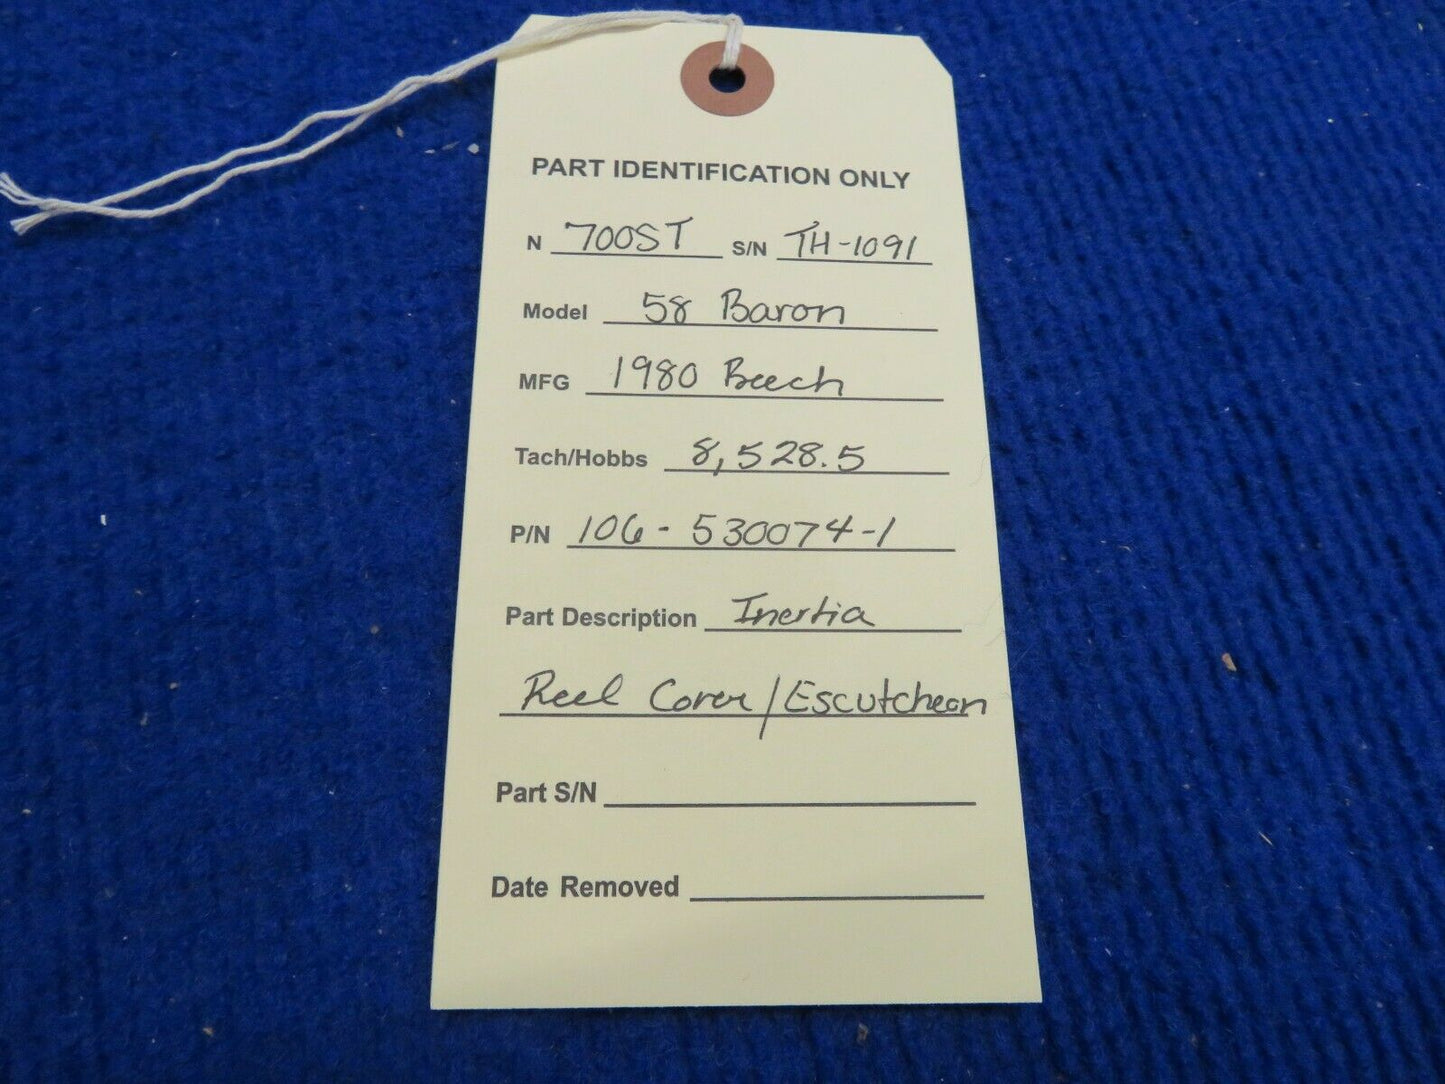 PART IDENTIFICATION ONLY
N 700ST S/N TH-1091
Model 58 Baron
MFG 1980 Beech
Tach/Hobbs 8,528.5
P/N 106-530074-1
Part Description Inertia
Reel Cover/Escutcheon
Part S/N
Date Removed